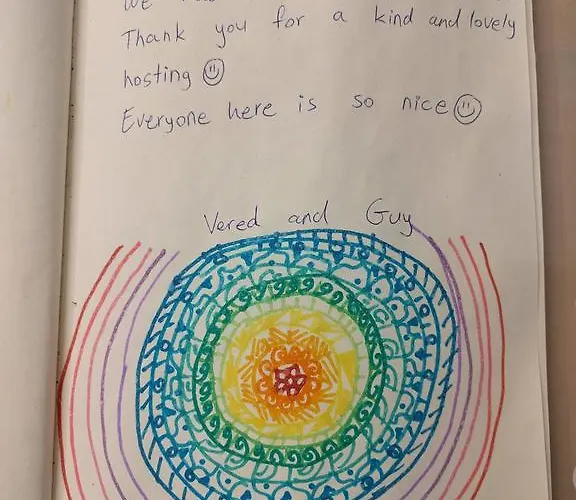 We
Thank you for a kind and lovely
hosting ☺
Everyone here is so nice ☺
Vered and Guy